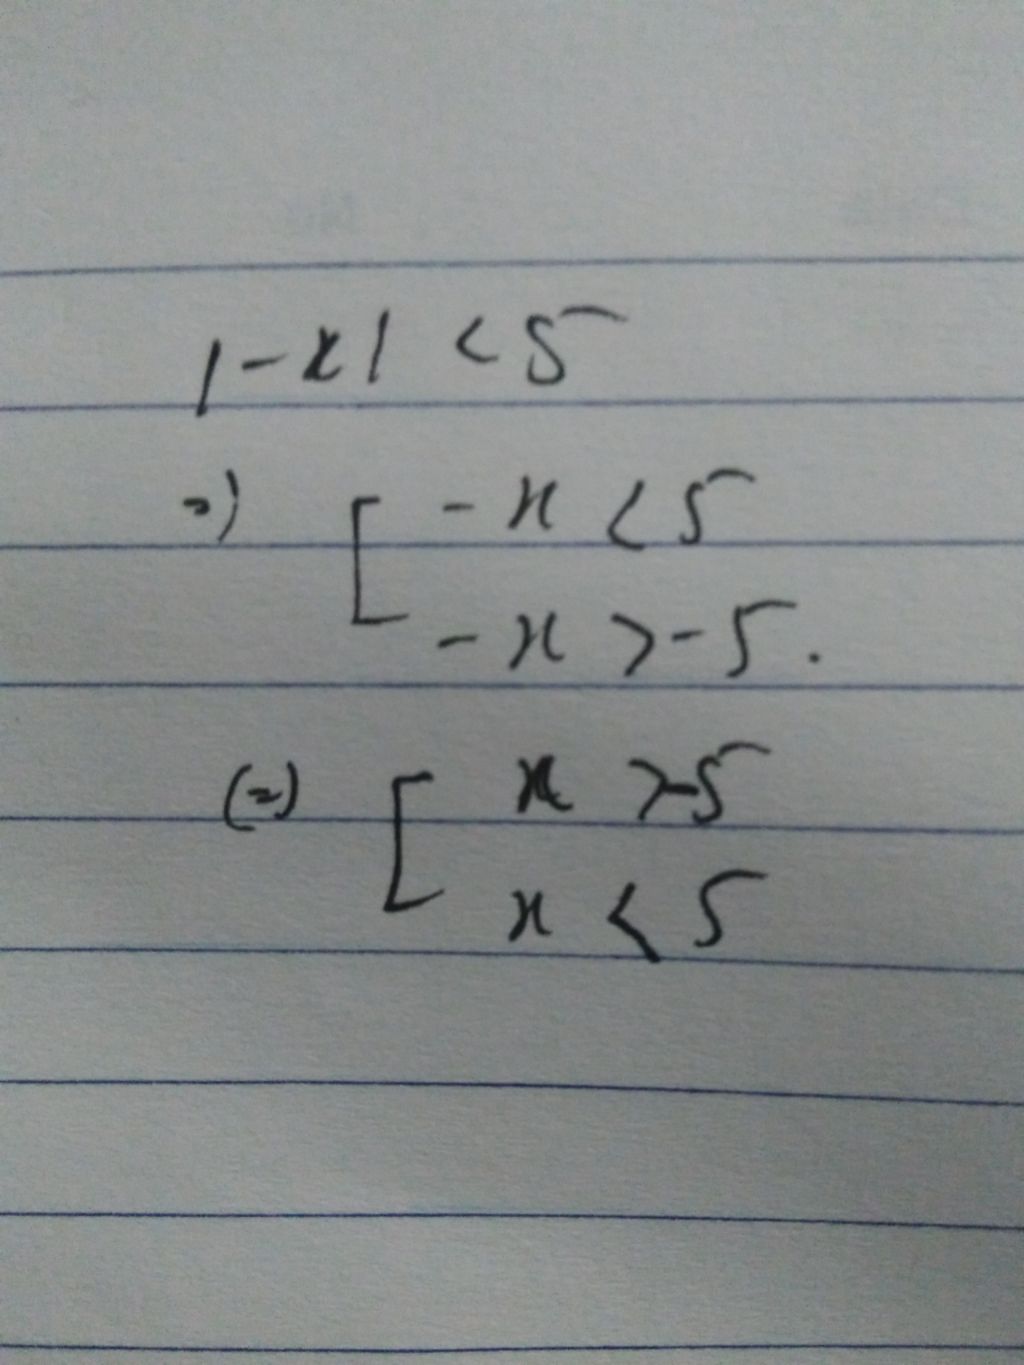 |-x| < 5
=) [ -x < 5
-x > -5.
(=) [ x > -5
x < 5